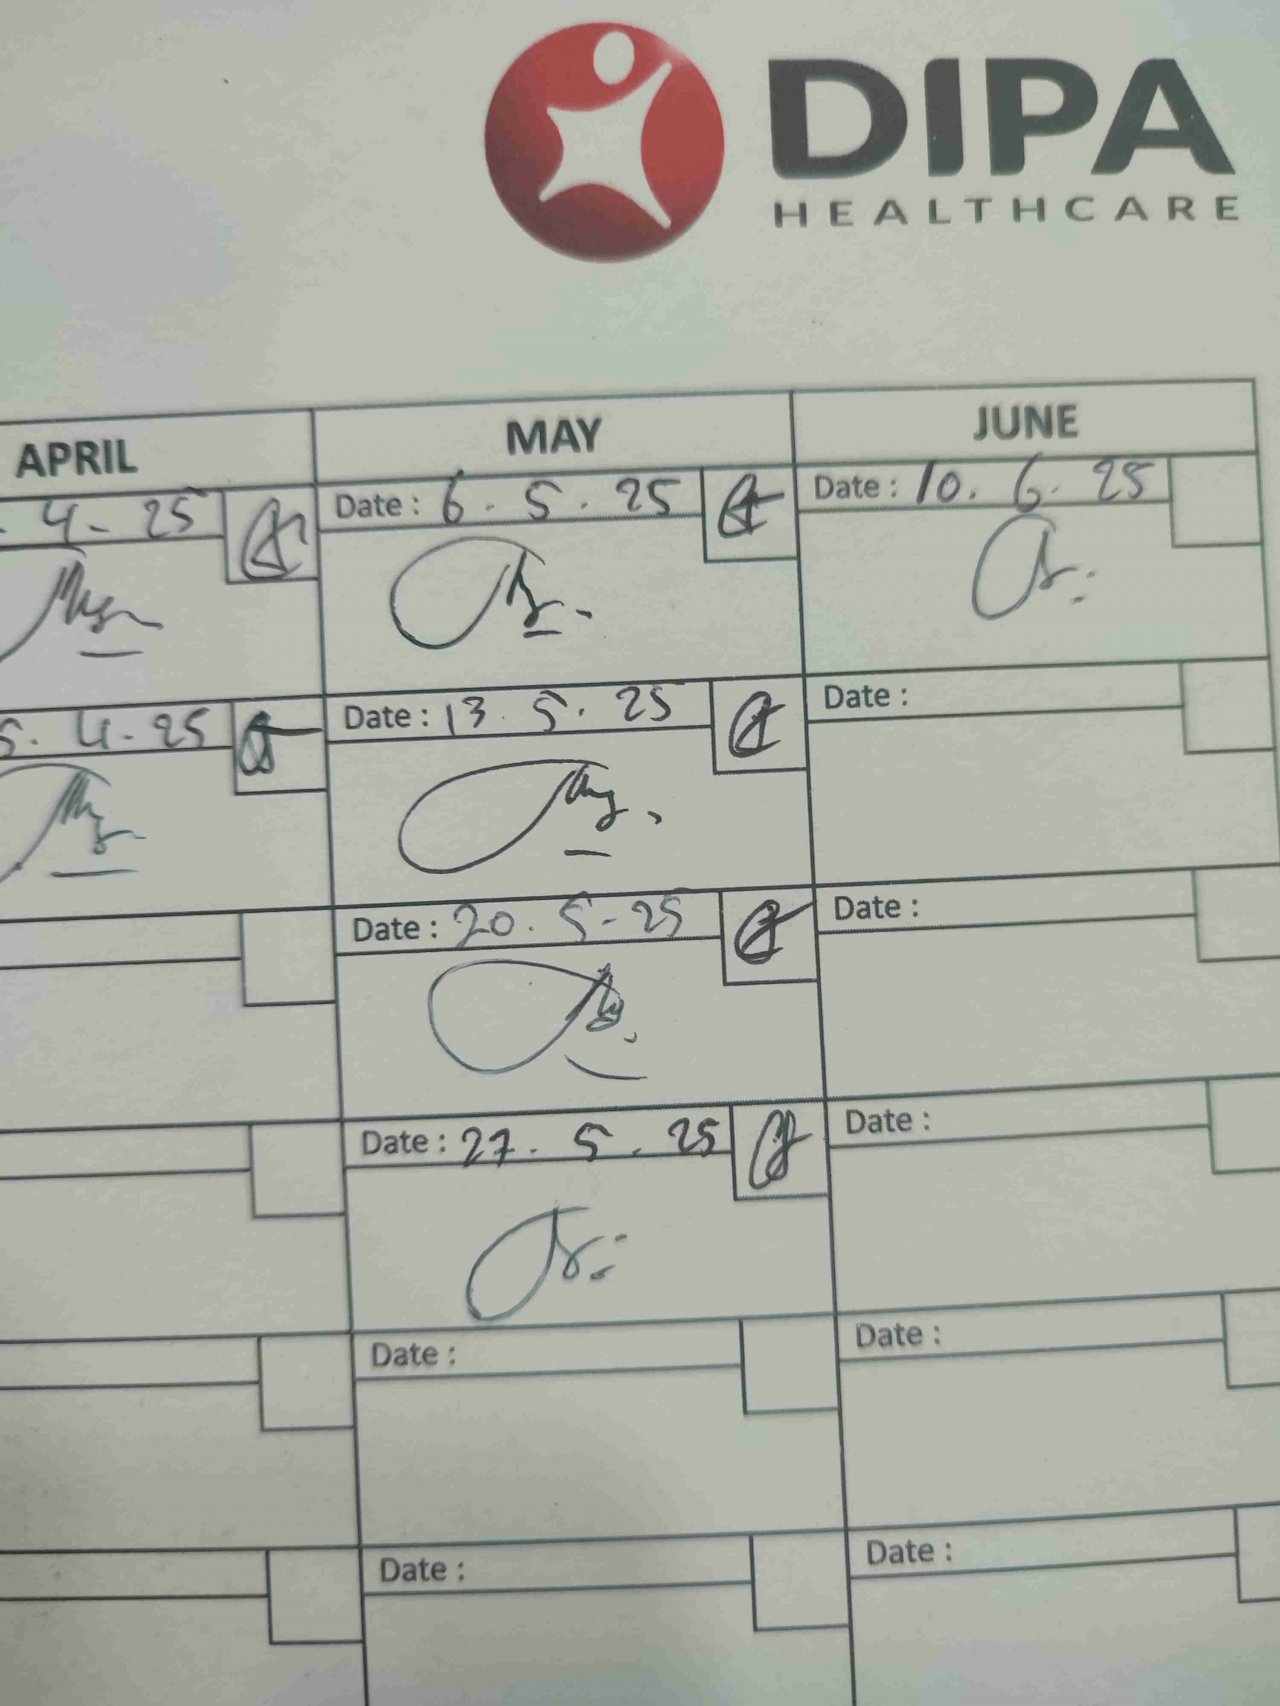 DIPA
HEALTHCARE
APRIL MAY JUNE
4-25 Date : 6.5.25 Date : 10.6.25
5.4-25 Date : 13.5.25 Date :
Date : 20.5-25 Date :
Date : 27.5.25 Date :
Date : Date :
Date : Date :